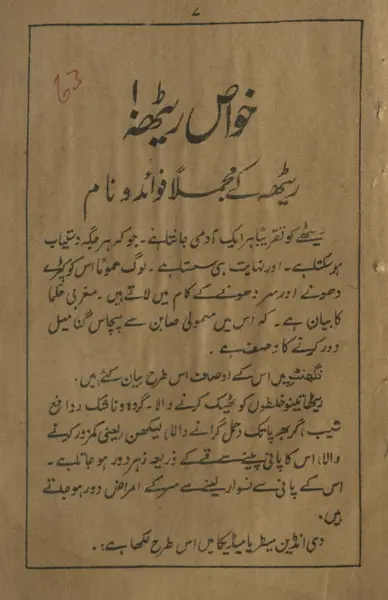 ۷
63
خواص ریٹھہ!
ریٹھہ کے مجملاً فوائد و نام
ریٹھے کو تقریباً ہر ایک آدمی جانتا ہے۔ جو کہ ہر جگہ دستیاب
ہو سکتا ہے۔ اور نہایت ہی سستا ہے۔ لوگ عموماً اس کو کپڑے
دھونے اور سر دھونے کے کام میں لاتے ہیں۔ مغربی حکما
کا بیان ہے۔ کہ اس میں معمولی صابن سے پچاس گنا میل
دور کرنے کا وصف ہے۔
نگھنٹو میں اس کے اوصاف اس طرح بیان کئے ہیں۔
ریٹھا تینو خلطوں کو ٹھیک کرنے والا۔ گرہ و ناشک ر دافع
شیب، گربھ پاتک (حمل گرانے والا)، لیکھن (یعنی کمزور کرنے
والا، اس کا پانی پینے سے قے کے ذریعہ زہر دور ہو جاتا ہے۔
اس کے پانی سے نسوار لینے سے سر کے امراض دور ہو جاتے
ہیں۔
دی انڈین میٹریا میڈیکا میں اس طرح لکھا ہے:۔